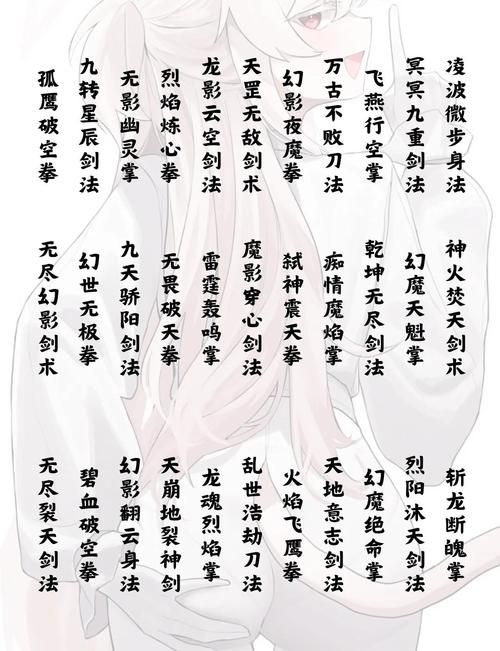 凌波微步身法
冥冥九重剑法
飞燕行空掌
万古不败刀法
幻影夜魔拳
天罡无敌剑术
龙影云空剑法
烈焰炼心拳
无影幽灵掌
九转星辰剑法
孤鹰破空拳
神火焚天剑术
幻魔天魁掌
乾坤无尽剑法
痴情魔焰掌
弑神震天拳
魔影穿心剑法
雷霆轰鸣掌
无畏破天拳
九天骄阳剑法
幻世无极拳
无尽幻影剑术
斩龙断魄掌
烈阳沐天剑法
幻魔绝命掌
天地意志剑法
火焰飞鹰拳
乱世浩劫刀法
龙魂烈焰掌
天崩地裂神剑
幻影翻云身法
碧血破空拳
无尽裂天剑法